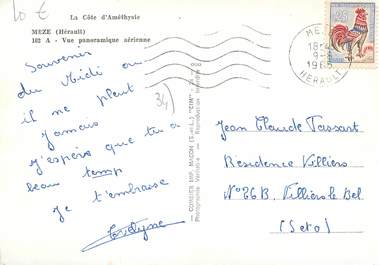 20 €
La Côte d'Améthyste
MEZE (Hérault)
102 A - Vue panoramique aérienne
Souvenir
du Midi ou
il ne pleut
jamais
J'espère que tu a
beau temp
Je t'embrasse
Evelyne
34)
COMBIER IMP. MACON (S.-et-L.) "CIM"
Photographie Véritable - Reproduction interdite
MEZE
18-4
9-
1965
HERAULT
Jean Claude Tassart
Residence Villiers
N°26B. Villiers le Bel
(Seto)